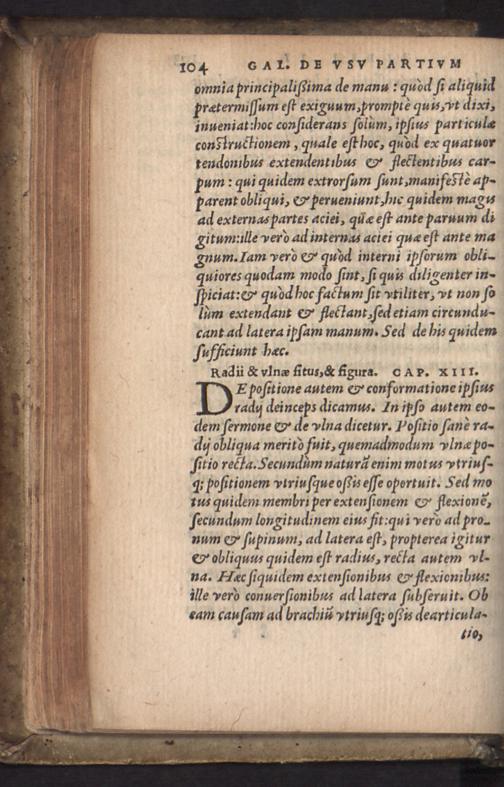 104 GAL. DE VSV PARTIVM
omnia principalißima de manu : quòd si aliquid
prætermissum est exiguum, promptè quis, vt dixi,
inueniat: hoc considerans solùm, ipsius particulæ
constructionem, quale est hoc, quòd ex quatuor
tendonibus extendentibus & flectentibus car-
pum : qui quidem extrorsum sunt, manifestè ap-
parent obliqui, & perueniunt, hic quidem magis
ad externas partes aciei, quæ est ante paruum di
gitum: ille verò ad internas aciei quæ est ante ma
gnum. Iam verò & quòd interni ipsorum obli-
quiores quodam modo sint, si quis diligenter in-
spiciat: & quòd hoc factum sit vtiliter, vt non so
lùm extendant & flectant, sed etiam circundu-
cant ad latera ipsam manum. Sed de his quidem
sufficiunt hæc.
Radii & vlnæ situs, & figura. CAP. XIII.
DE positione autem & conformatione ipsius
radij deinceps dicamus. In ipso autem eo-
dem sermone & de vlna dicetur. Positio sanè ra-
dij obliqua meritò fuit, quemadmodum vlnæ po-
sitio recta. Secundùm naturā enim motus vtrius-
q; positionem vtriusque oßis esse oportuit. Sed mo
tus quidem membri per extensionem & flexionē,
secundum longitudinem eius fit: qui verò ad pro-
num & supinum, ad latera est, propterea igitur
& obliquus quidem est radius, recta autem vl-
na. Hæc siquidem extensionibus & flexionibus:
ille verò conuersionibus ad latera subseruit. Ob
eam causam ad brachiū vtriusq; oßis dearticula-
tio,